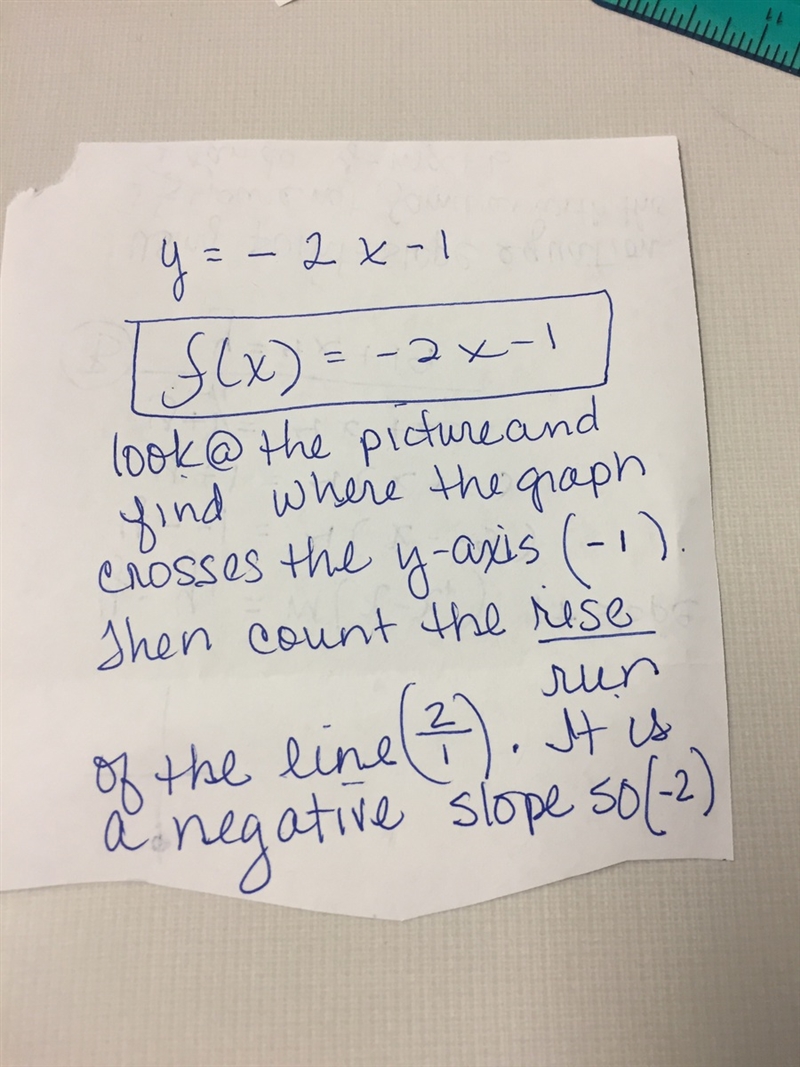 y = - 2 x - 1
f(x) = -2x-1
look@ the picture and
find where the graph
crosses the y-axis (-1).
Then count the rise
run
of the line (2/1). It is
a negative slope so (-2)
11